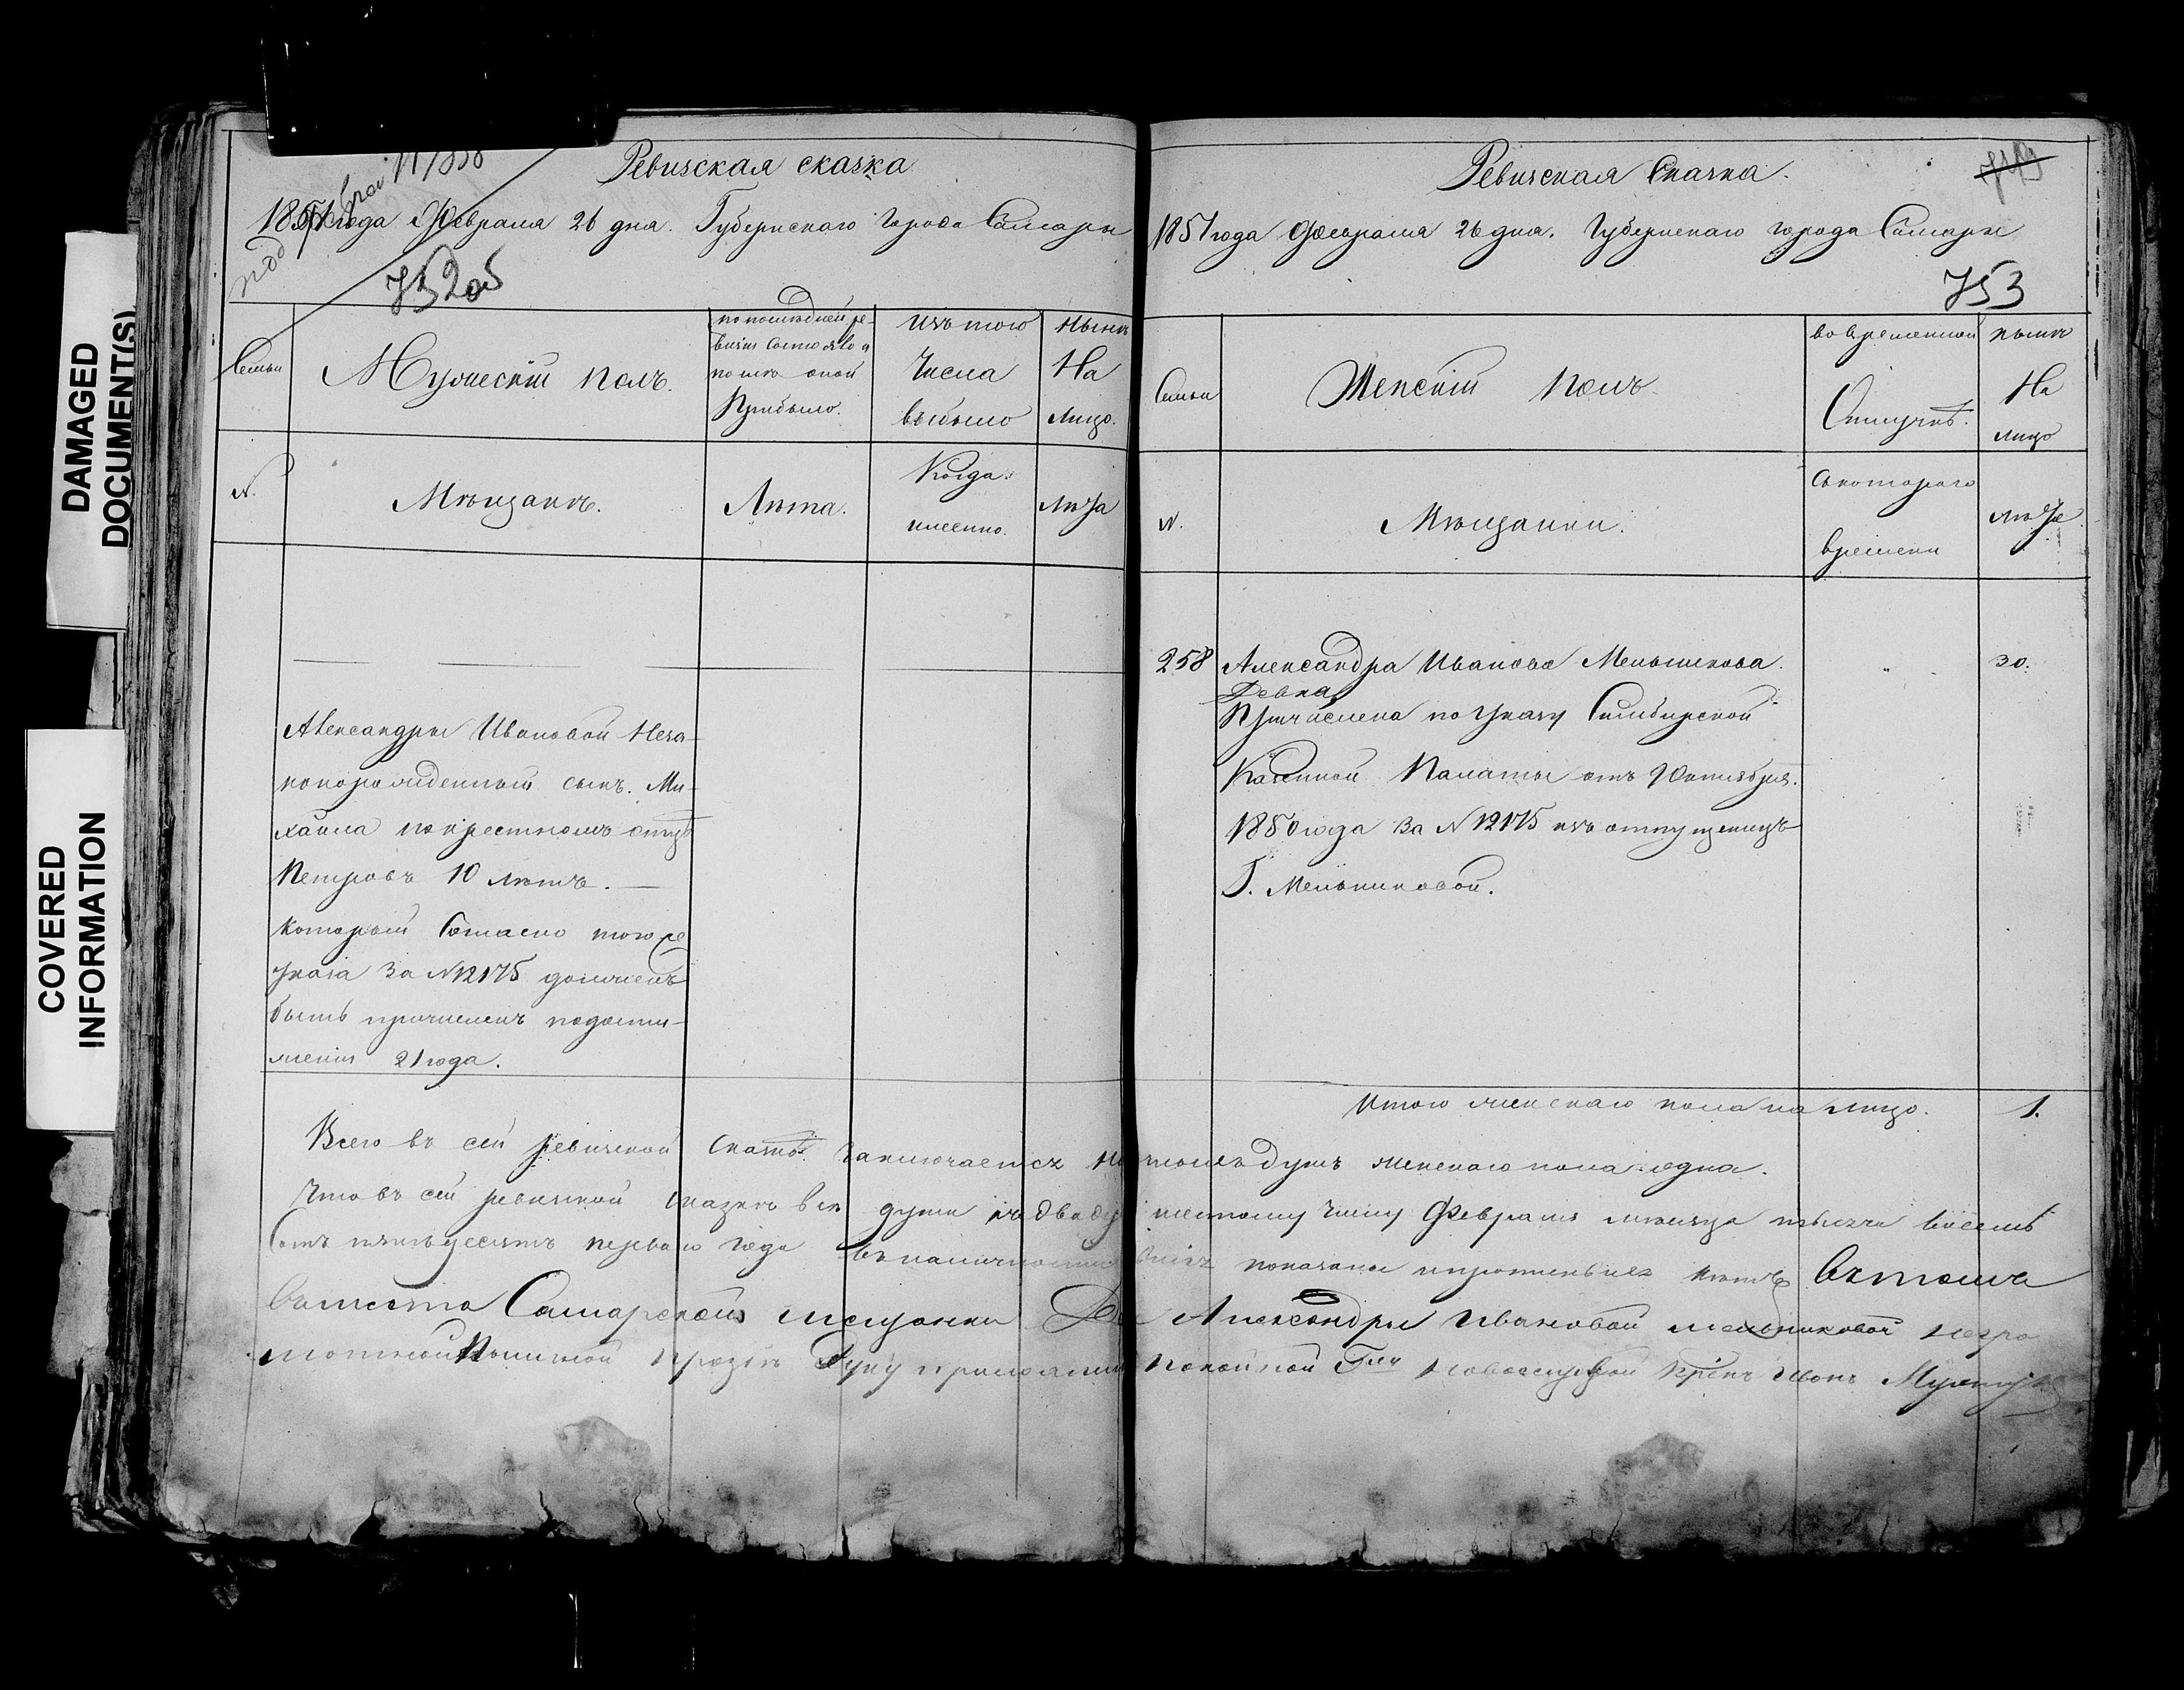 DAMAGED
DOCUMENT(S)
COVERED
INFORMATION
Ревизская сказка
1851 года Февраля 26 дня. Губернскаго города Самары
752 об
Семьи
Мужескій полъ.
по последней ре-
визіи состояло и
после оной
Прибыло.
Изъ того
Числа
выбыло
Ныне
На
лицо.
N.
Мѣщанѣ.
Лѣта.
Когда
именно.
Лѣта
Александры Ивановой Неза-
коннорожденный сынъ. Ми-
хайла по крестномъ отцѣ
Петровъ 10 лѣтъ.
который Согласно того же
указа За N 12175 долженъ
быть причисленъ по дости-
женіи 21 года.
Ревизская Сказка.
1851 года Февраля 26 дня. Губернскаго города Самары
753
Семьи
Женскій Полъ
во временной
Отлучкѣ.
ныне
На
лицо
N.
Мѣщанки.
съ котораго
времени
лѣта
258 Александра Иванова Мельникова. " 30.
Девка
Причислена по Указу Симбирской
Казенной Палаты отъ Октября.
1850 года За N 12175 изъ отпущеницъ
Г. Мельниковой.
Итого женскаго пола на лицо. 1.
Всего въ сей ревизской Сказкѣ заключается душъ женскаго пола одна.
Что въ сей ревизской сказкѣ все души къ двадц шестому числу Февраля месяца тысяча восемь
Сотъ пятьдесятъ перваго года въ наличности показаны и прописныхъ нетъ въ томъ
въместо Самарской мещанки Де Александры Ивановой Мельниковой негра
мотной По личной прозбѣ Руку приложилъ покойной Г-жи Крѣп Иванъ